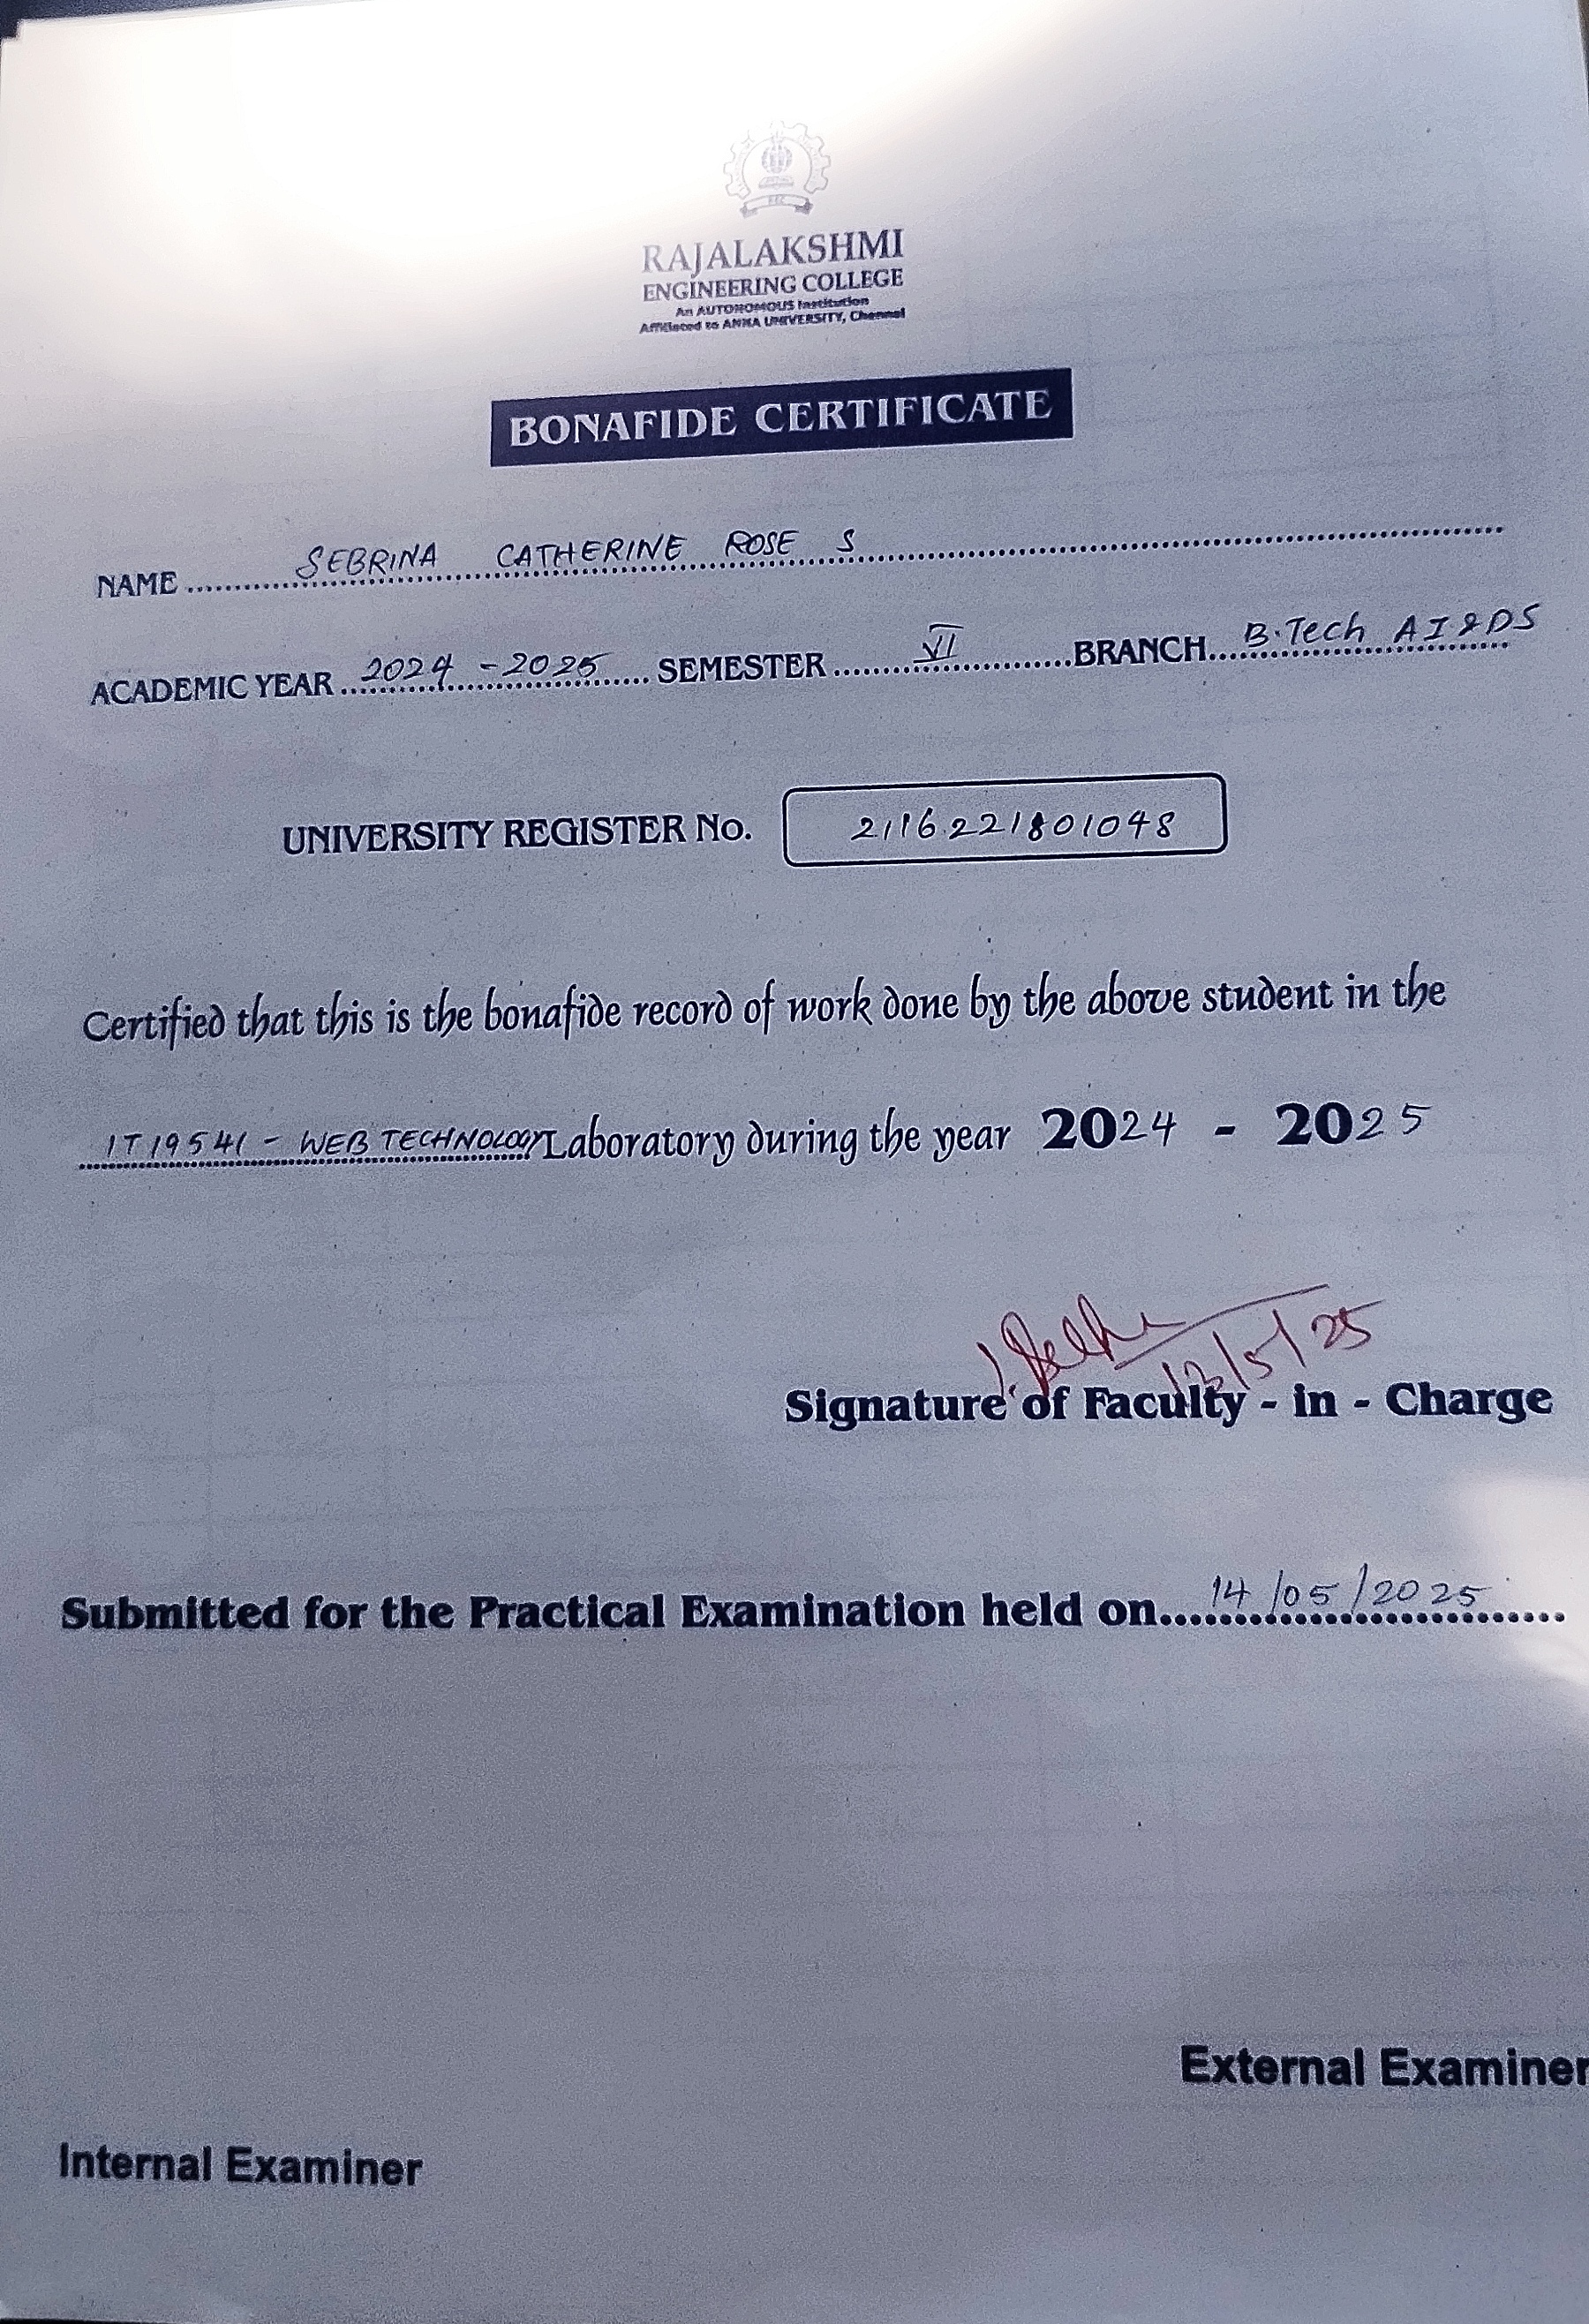 RAJALAKSHMI
ENGINEERING COLLEGE
An AUTONOMOUS Institution
Affiliated to ANNA UNIVERSITY, Chennai
BONAFIDE CERTIFICATE
NAME SEBRINA CATHERINE ROSE S
ACADEMIC YEAR 2024 - 2025 SEMESTER VI BRANCH B.Tech AI & DS
UNIVERSITY REGISTER No. 2116221801048
Certified that this is the bonafide record of work done by the above student in the
IT19541 - WEB TECHNOLOGY Laboratory during the year 2024 - 2025
/5/25
Signature of Faculty - in - Charge
Submitted for the Practical Examination held on 14/05/2025
External Examiner
Internal Examiner